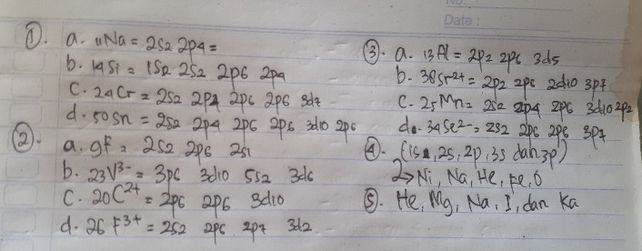 No:
Date :
①. a. 11Na = 2s2 2p4 =
b. 14Si = 1s2 2s2 2p6 2p4
c. 24Cr = 2s2 2p4 2p6 2p6 3d7
d. 50Sn = 2s2 2p4 2p6 2p6 3d10 2p6
②. a. 9F = 2s2 2p6 2s1
b. 23V3- = 3p6 3d10 5s2 3d6
c. 20C2+ = 2p6 2p6 3d10
d. 26 F3+ = 2s2 2p6 2p7 3d2
③. a. 13Al = 2p2 2p6 3d5
b. 38Sr2+ = 2p2 2p6 2d10 3p7
c. 25Mn = 2s2 2p4 2p6 3d10 2p2
d. 34Se2- = 2s2 2p6 2p6 3p7
④. (1s, 2s, 2p, 3s dan 3p)
2> Ni, Na, He, Fe, O
⑤. He, Mg, Na, I, dan Ka